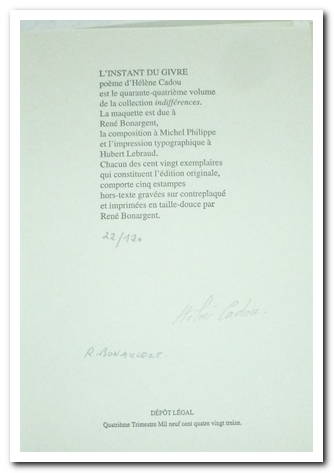 L'INSTANT DU GIVRE
poème d'Hélène Cadou
est le quarante-quatrième volume
de la collection indifférences.
La maquette est due à
René Bonargent,
la composition à Michel Philippe
et l'impression typographique à
Hubert Lebraud.
Chacun des cent vingt exemplaires
qui constituent l'édition originale,
comporte cinq estampes
hors-texte gravées sur contreplaqué
et imprimées en taille-douce par
René Bonargent.
22/120
Hélène Cadou
R. BONARGENT.
DÉPÔT LÉGAL
Quatrième Trimestre Mil neuf cent quatre vingt treize.